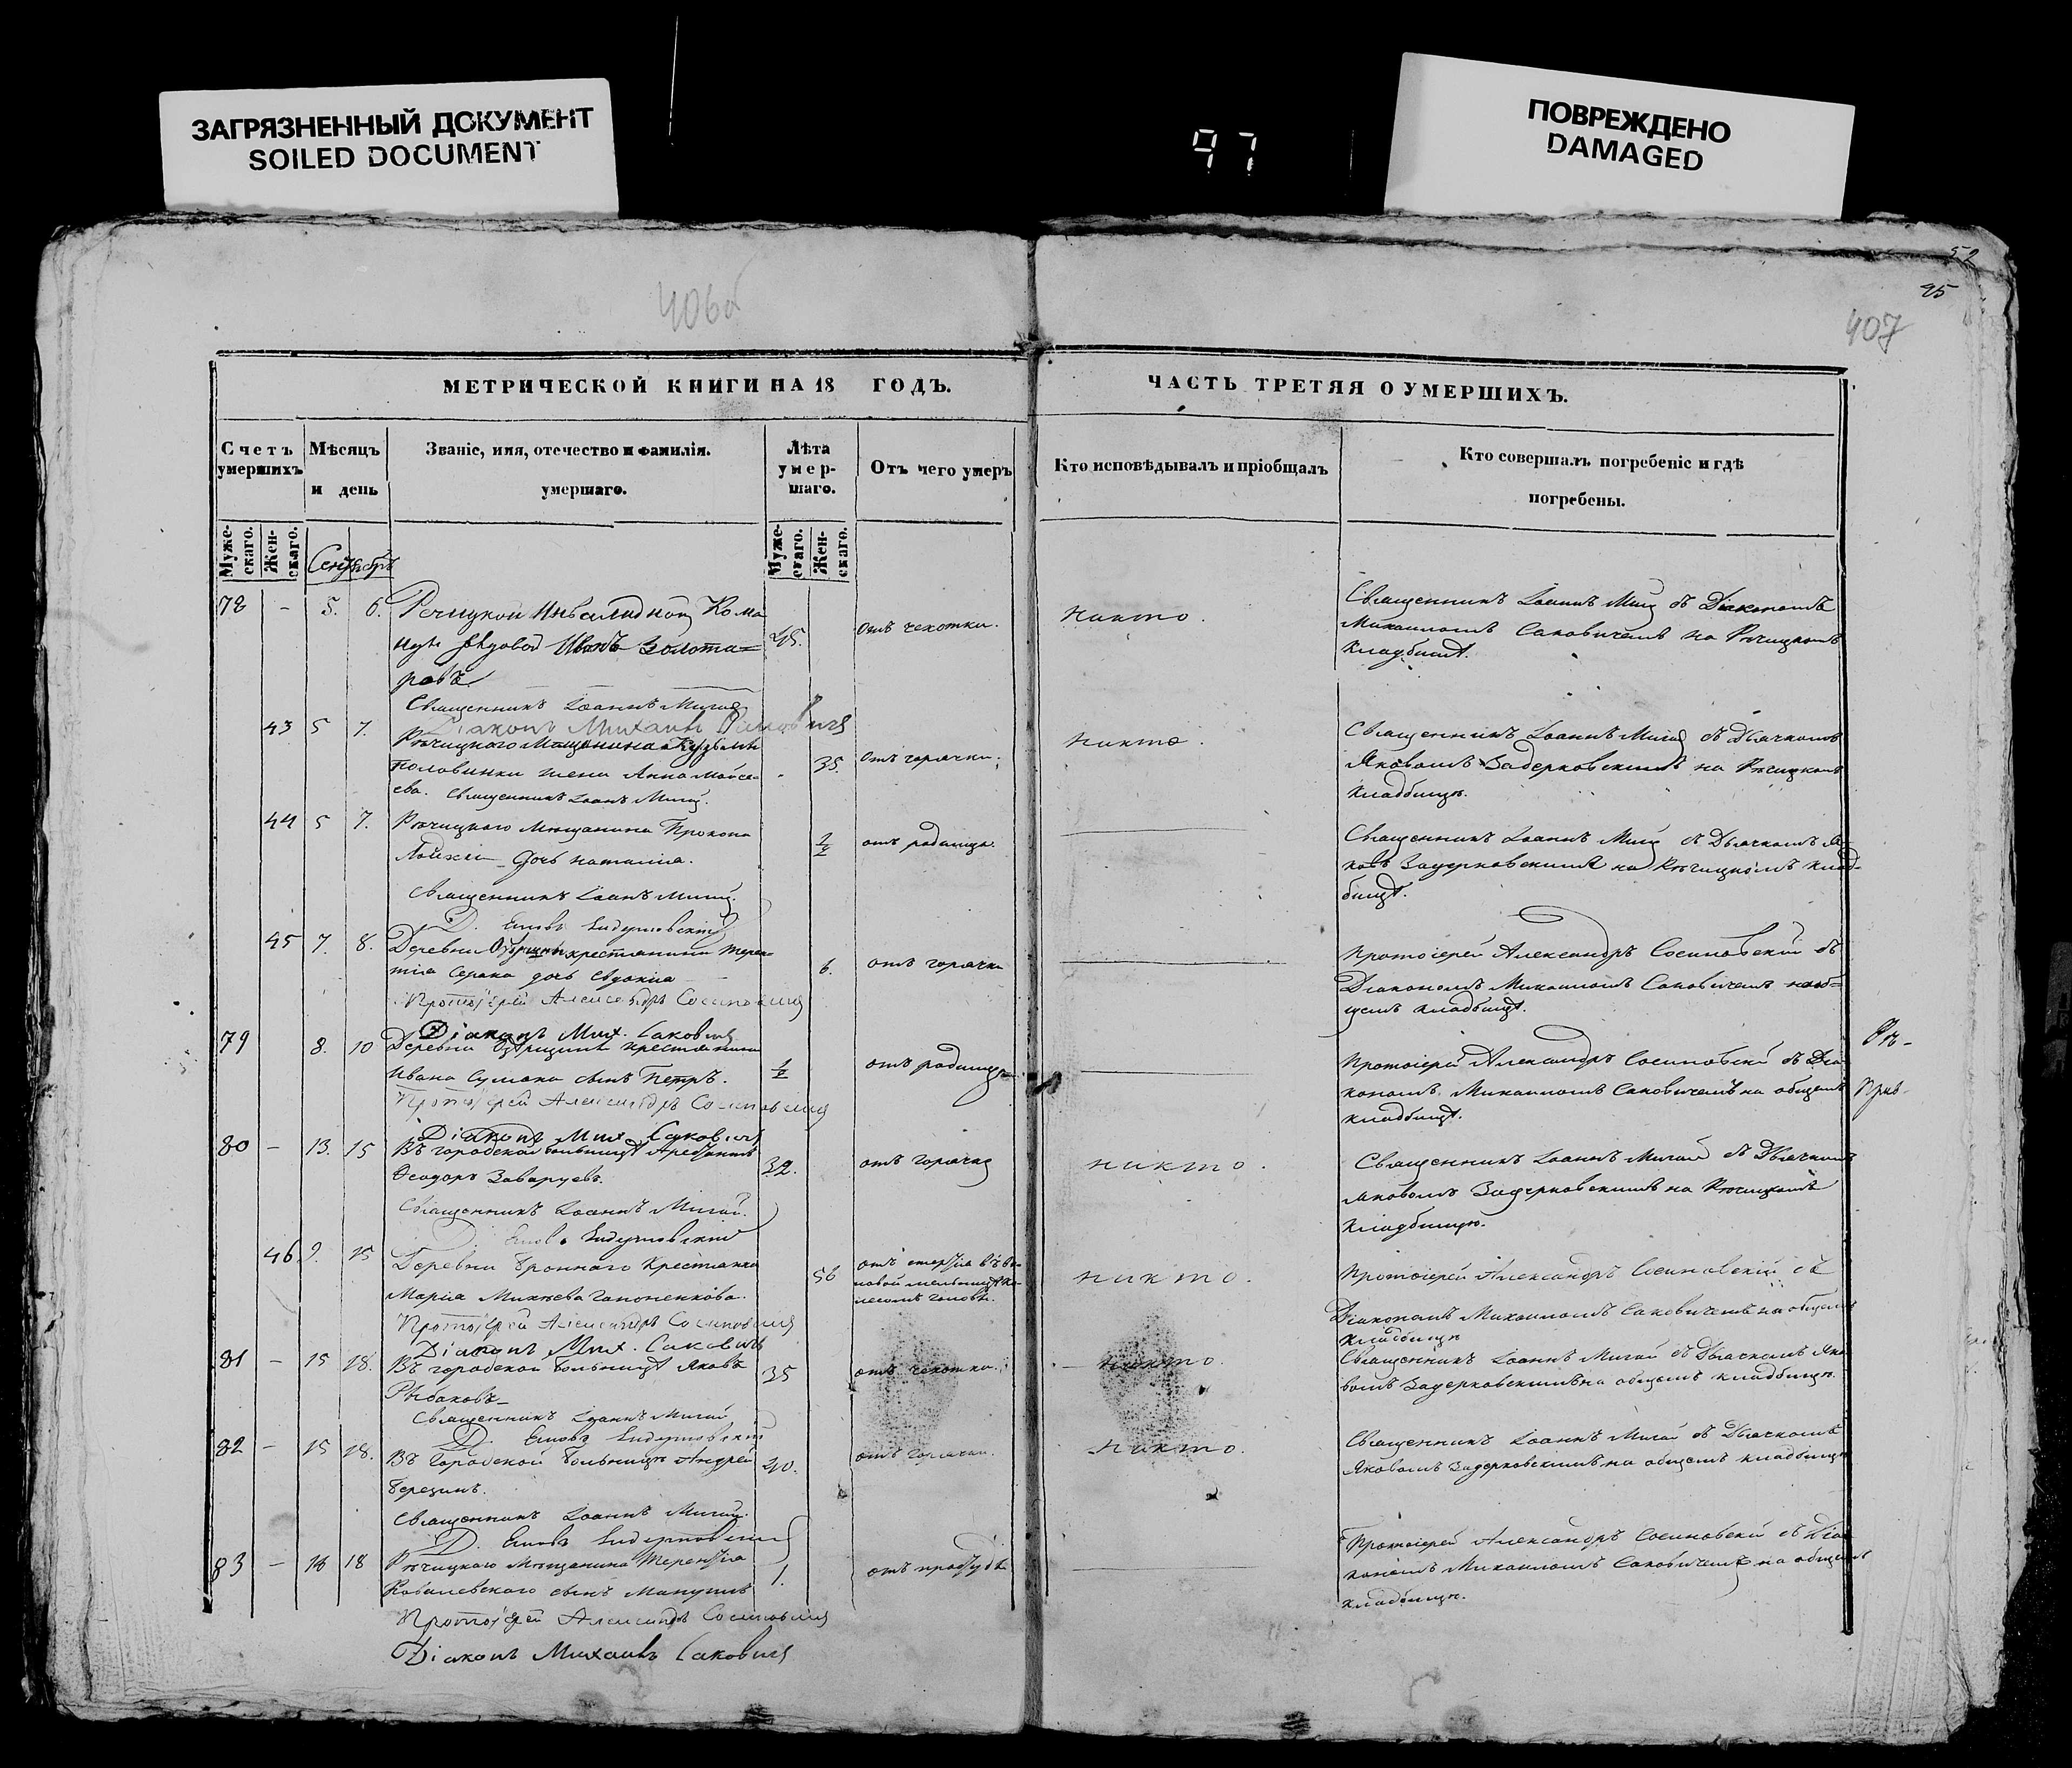 ЗАГРЯЗНЕННЫЙ ДОКУМЕНТ
SOILED DOCUMENT
97
ПОВРЕЖДЕНО
DAMAGED
52
95
406об
407
МЕТРИЧЕСКОЙ КНИГИ НА 18 ГОДЪ.
ЧАСТЬ ТРЕТЯЯ О УМЕРШИХЪ.
Счетъ умершихъ
Мѣсяцъ и день
Званіе, имя, отечество и фамилія. умершаго.
Лѣта умер-шаго.
Отъ чего умеръ
Кто исповѣдывалъ и пріобщалъ
Кто совершалъ погребеніе и гдѣ погребены.
Муже-скаго.
Жен-скаго.
Муже-скаго.
Жен-скаго.
Сентябрь
78 - 5. 6. Речицкой Инвалидной Кома
нды рядовой Иванъ Золота=
ровъ
45. отъ чахотки. никто.
Священникъ Іоаннъ Мигай съ Діакономъ
Михаиломъ Саковичемъ на Рѣчицкомъ
кладбищѣ.
Священникъ Іоаннъ Мигай
Діаконъ Михаилъ Саковичъ
43 5 7. Рѣчицкого Мѣщанина Кузьмы
Половинки жена Анна Моисе-
ева. Священникъ Іоаннъ Мигай.
35. отъ горячки. никто.
Священникъ Іоаннъ Мигай съ Дьячкомъ
Яковомъ Задерковскимъ на Рѣчицкомъ
кладбищѣ.
44 5 7. Рѣчицкого мѣщанина Прокопа
дочь Наталія.
1/2 отъ родимца.
Священникъ Іоаннъ Мигай съ Дьячкомъ Я-
ковъ Задерковскимъ на Рѣчицкомъ клад-
бищѣ.
Священникъ Іоаннъ Мигай.
45 7. 8. Деревни Озерщины крестьянина Терен-
тія Серака дочь Евдокія
6. отъ горячки
Протоіерей Александръ Сосиновскій съ
Діакономъ Михаиломъ Саковичемъ на об=
щемъ кладбищѣ.
Протоіерей Александръ Сосиновскій
Діаконъ Мих. Саковичъ
79 8. 10 Деревни Озерщины крестьянина
Ивана Сумака сынъ Петръ.
1/2 отъ родимца
Протоіерей Александръ Сосиновскій съ Діа
кономъ Михаиломъ Саковичемъ на общемъ
кладбищѣ.
Протоіерей Александръ Сосиновскій
Діаконъ Мих. Саковичъ
80 - 13. 15 Въ городской больницѣ Арестантъ
Ѳеодоръ Заваруевъ.
32. отъ горячки никто.
Священникъ Іоаннъ Мигай съ Дьячкомъ
Яковомъ Задерковскимъ на Рѣчицкомъ
кладбищѣ.
Священникъ Іоаннъ Мигай.
46 9. 15 Деревни Броннаго Крестьянка
Марія Михѣева Гапоненкова.
56 никто.
Протоіерей Александръ Сосиновскій съ
Діакономъ Михаиломъ Саковичемъ на общемъ
кладбищѣ
Протоіерей Александръ Сосиновскій
Діаконъ Мих. Саковичъ
81 - 15 18. Въ городской больницѣ Яковъ
Рыбаковъ
35 отъ чахотки. никто.
Священникъ Іоаннъ Мигай съ Дьячкомъ Яко
вомъ Задерковскимъ на общемъ кладбищѣ.
Священникъ Іоаннъ Мигай
82 - 15 18. Въ городской больницѣ Андрей
Березинъ.
40. отъ горячки. никто.
Священникъ Іоаннъ Мигай съ Дьячкомъ
Яковомъ Задерковскимъ на общемъ кладбищѣ
Священникъ Іоаннъ Мигай.
83 - 16 18 Рѣчицкого Мѣщанина Терентія
Ковалевского сынъ
1. отъ простуды
Протоіерей Александръ Сосиновскій съ Діа
кономъ Михаиломъ Саковичемъ на общемъ
кладбищѣ.
Протоіерей Александръ Сосиновскій
Діаконъ Михаилъ Саковичъ